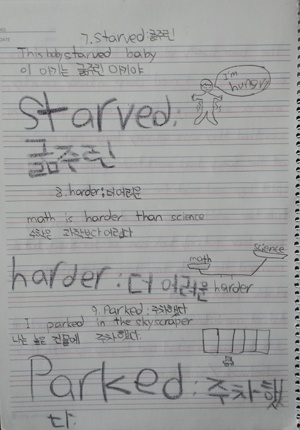 7. Starved:굶주린
This baby starved baby
이 아기는 굶주린 아기야
I'm hungry
Starved:
굶주린
8. harder:더 어려운
math is harder than science
수학은 과학보다 어렵다
math
science
harder : 더 어려운
harder
9. Parked : 주차했다
I parked in the skyscraper
나는 높은 건물에 주차했다.
Parked: 주차했
다.